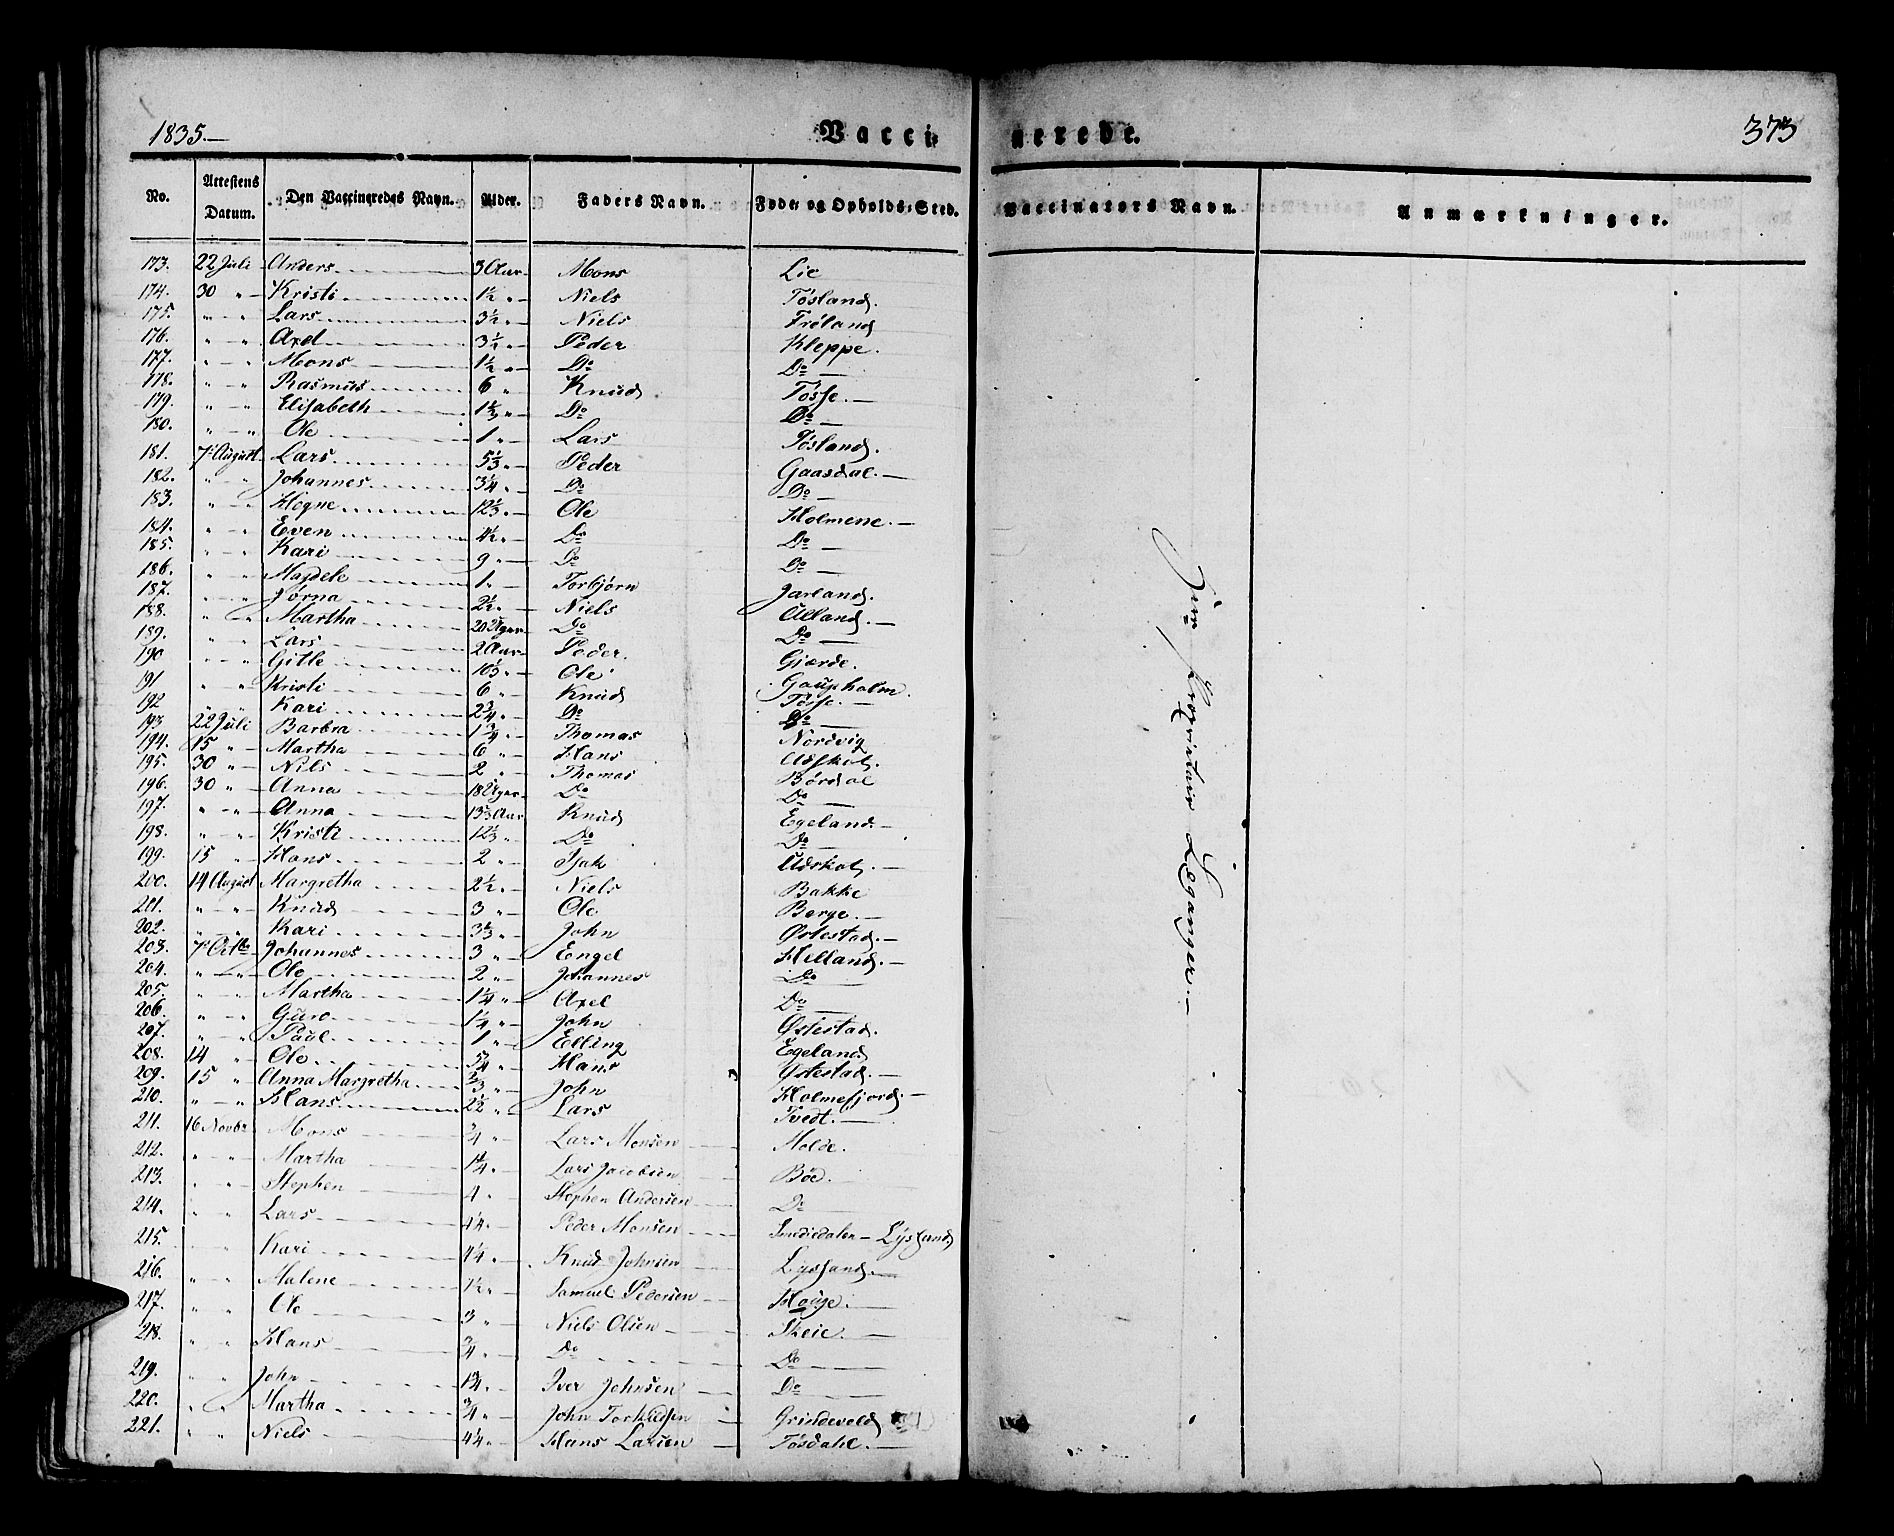 1835.— Vacci- nerede. 373
No. Attestens Datum. Den Vaccineredes Navn. Alder. Faders Navn. Føde- og Opholds-Sted. Vaccinators Navn. Anmærkninger.
173. 22 Juli Anders 3 Aar Mons Lie
174. 30 " Kristi 1½ " Niels Tøsland.
175. " " Lars 3½ " Niels Frøland
176. " " Axel 3½ " Peder Kleppe.
177. " " Mons 1½ " Do Do —
178. " " Rasmus 6 " Knud Tøsse. —
179. " " Elisabeth 1½ " Do Do —
180. " " Ole 1 " Lars Tøsland.
181. 7 August Lars 5⅓ " Peder Gaasdal. —
182. " " Johannes 3¼ " Do Do —
183. " " Hogne 12⅓ " Ole Holmene. —
184. " " Even 4½ " Do Do —
185. " " Kari 9 " Do Do —
186. " " Magdele 1 " Torbjørn Jarland.
187. " " Jørna 2½ " Niels Alland. —
188. " " Martha 20 Uger Do Do —
189. " " Lars 2 Aar Peder. Gjærde.
190 " " Gitle 10⅓ " Ole Gaupholm.
191 " " Kristi 6 " Knud Tøsse. —
192 " " Kari 2¾ " Do Do —
193. 22 Juli Barbra 1¾ " Thomas Nordvig
194. 15 " Martha 6 " Hans Udskot.
195. 30 " Nils 2 " Thomas Børdal
196. 30 " Anna 18 Uger Do Do —
197. " " Anna 13⅔ Aar Knud Egeland. —
198. " " Kristi 12⅓ " Do Do —
199. 15 " Hans 2 " Isak Udskot. —
200. 14 August Margretha 2½ " Niels Bakke
201. " " Knud 3 " Ole Berge. —
202. " " Kari 3⅔ " John Østestad. —
203. 7 Octbr Johannes 3 " Engel Helland. —
204. " " Ole 2 " Johannes Do —
205. " " Martha 1¼ " Axel Do —
206. " " Guro 1¼ " John Østestad.
207. " " Paul 1 " Elling Egeland
208. 14 " Ole ¾ " Hans Ystestad. —
209. 15 " Anna Margretha ⅔ " John Holmefjord. —
210. " " Hans 2½ " Lars Tvedt. —
211. 16 Novbr Mons ¾ " Lars Monsen Molde.
212. " " Martha 1¼ " Lars Jacobsen Bøe.
213. " " Stephen 1 " Stephen Andersen Do —
214. " " Lars 4¼ " Peder Monsen Smediedalen – Lysland
215. " " Kari 4¼ " Knud Johnsen Lysland. —
216. " " Malene 1½ " Samuel Pedersen Houge. —
217. " " Ole 3 " Niels Olsen Skeie. —
218. " " Hans ¾ " Do Do —
219. " " John 1¾ " Iver Johnsen Do —
220. " " Martha ¾ " John Torkildsen Grindevold
221. " " Niels 4¼ " Hans Larsen Tøsdahl. —
Proprietair Leganger. —